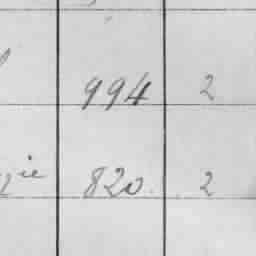 994 2
820. 2